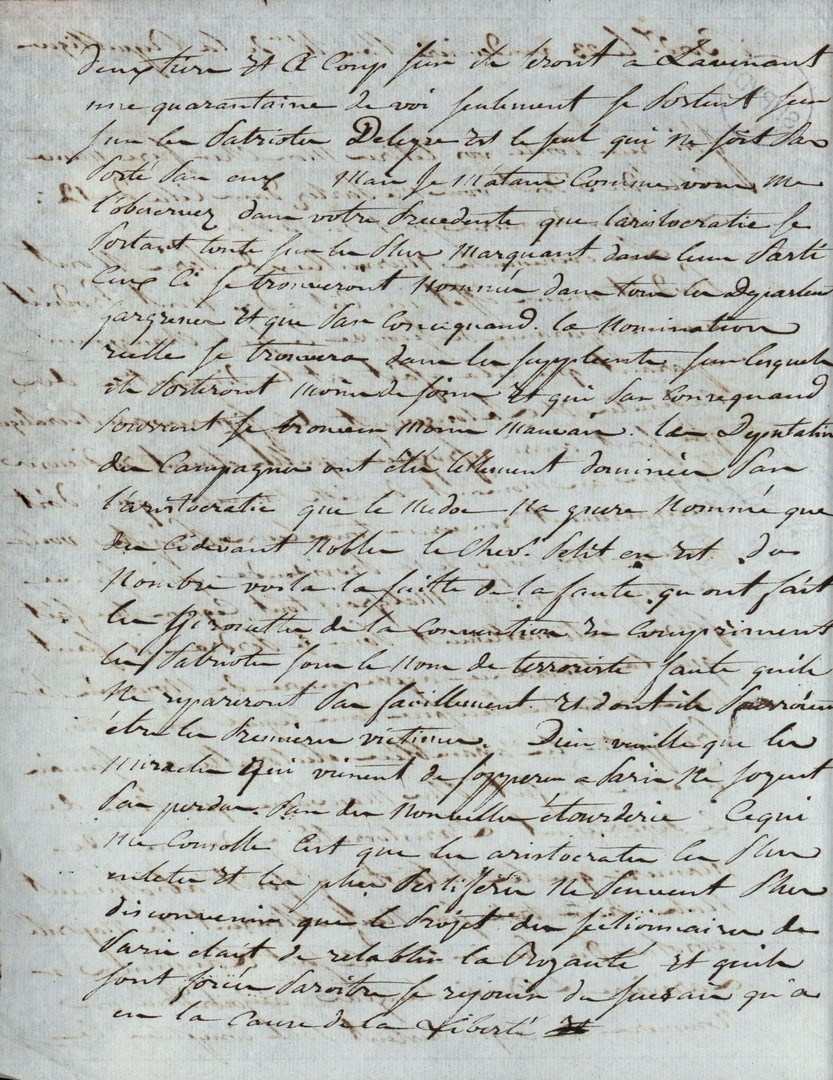 deux tiers et a coup sur ils seront a Lavenant
une quarantaine de voi seulement se portent sur
sur les patriotes Deleyre est le seul qui ne soit pas
porté par eux Mais je Matans Comme vous me
l'observez dans votre precedente que laristocratie se
portant toute sur les plus Marquant dans leur parti
Ceux Ci se trouveront Nommes dans tous les departes
et que par Consequand la Nomination
reelle se trouvera dans les suppleants sur lesquels
ils porteront moins de soins Et qui par Consequand
pouront se trouver moins mauvais. les Deputations
des Campagnes ont été tellement dominées par
l'aristocratie que le Medoc Na guere Nommé que
des Cidevant Nobles le Chevr. Petit en Est du
Nombre voila la suitte de la faute qu'ont fait
les Girouettes de la Convention En Comprimant
les patriotes sous le Nom de terroriste faute quils
Ne repareront pas facillement Et dont ils pourroient
être les premieres victimes. Dieu veuille que les
miracles qui vienent de sopperer a Paris Ne soyent
pas perdus par des Nouvelles étourderie Cequi
me Consolle Cest que les aristocrates les plus
entetes Et les plus pestiferés Ne peuvent plus
disconvenir que le projet des sectionnaires de
Paris etait de retablir la Royauté et quils
sont forcés paroitre se rejouir du sucsais qu'a
eu la Cause de la Liberté